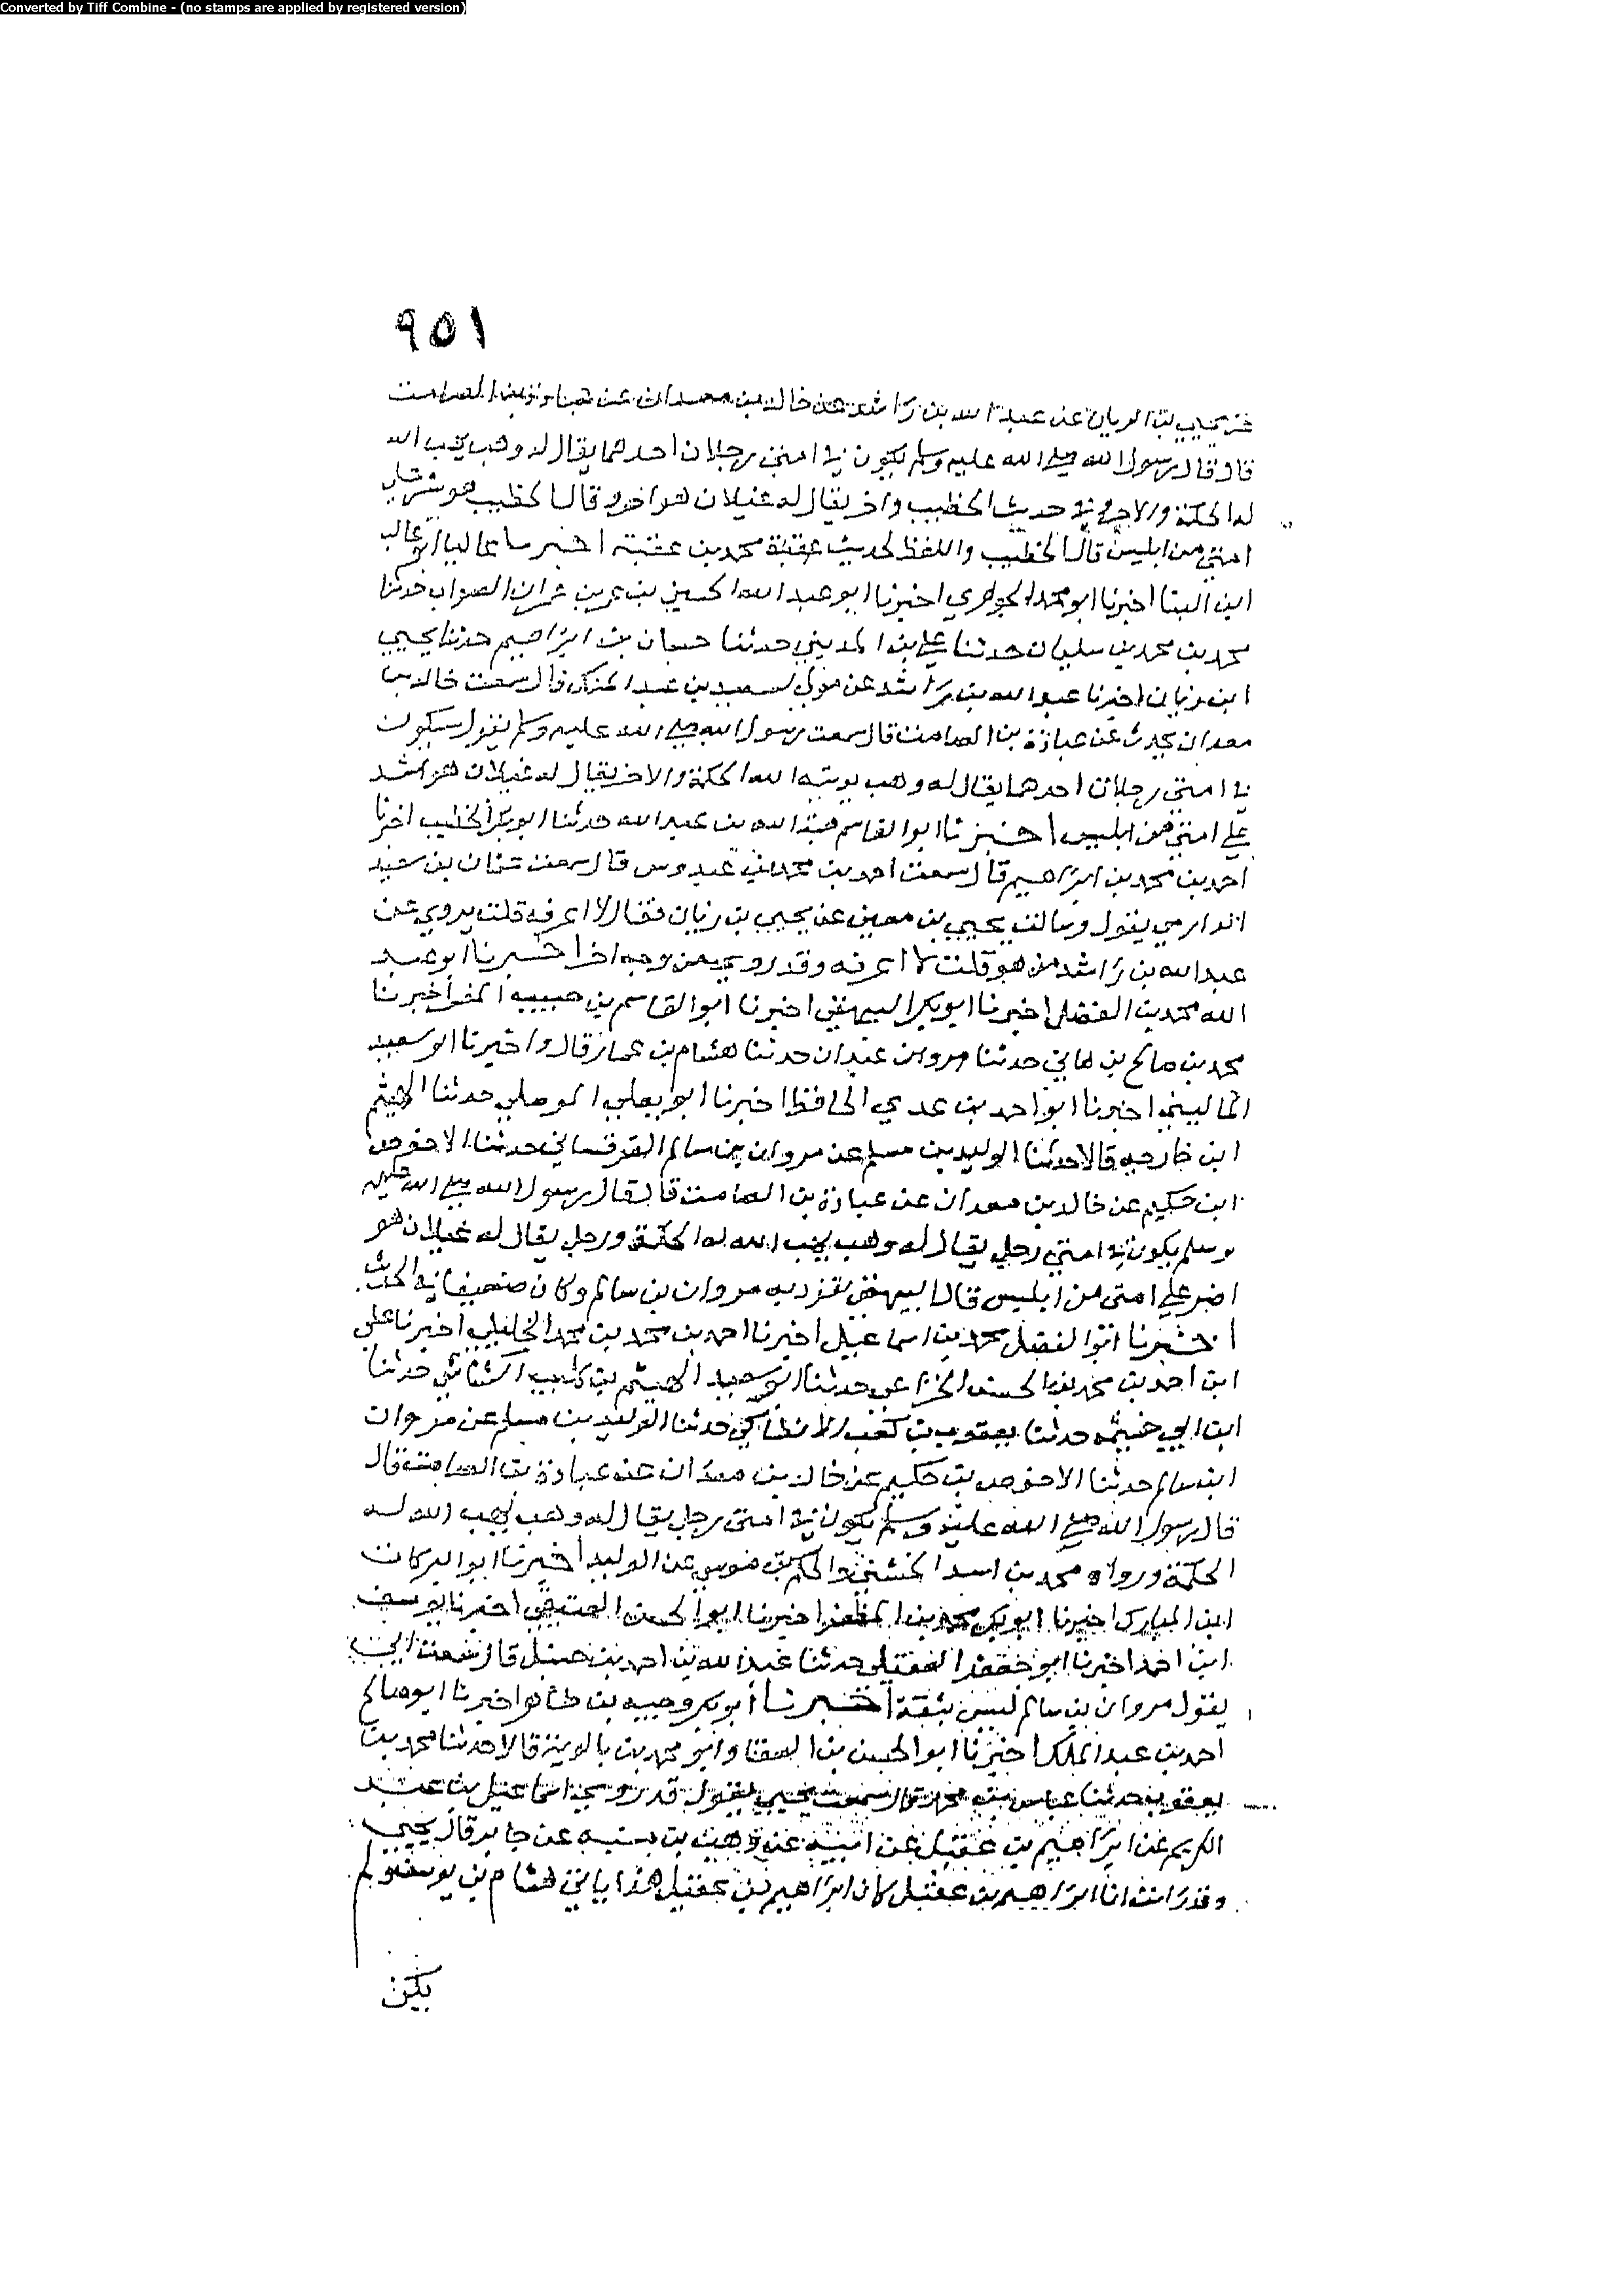 Converted by Tiff Combine - (no stamps are applied by registered version)
٩٥١
عن يحيى بن الريان عن عبد الله بن راشد عن خالد بن معدان عن عبادة بن الصامت
قال قال رسول الله صلى الله عليه وسلم يكون في امتي رجلان احدهما يقال له وهب يهب الله
له الحكمة والاخر في حديث الخطيب واخر يقال له غيلان هو اضر وقال الخطيب هو شر على
امتي من ابليس قال الخطيب واللفظ لحديث عقبة محمد بن عقبة اخبرنا عاليا ابو غالب
ابن البنا اخبرنا ابو محمد الجوهري اخبرنا ابو عبد الله الحسين بن عمر بن عمران الصواب حدثنا
محمد بن محمد بن سليمان حدثنا علي بن المديني حدثنا حسان بن ابراهيم حدثنا يحيى
ابن زبان اخبرنا عبد الله بن راشد عن مولى لسعيد بن عبد الملك قال سمعت خالد بن
معدان يحدث عن عبادة بن الصامت قال سمعت رسول الله صلى الله عليه وسلم يقول سيكون
في امتي رجلان احدهما يقال له وهب يوتيه الله الحكمة والاخر يقال له غيلان هو اشد
على امتي من ابليس اخبرنا ابو القاسم هبة الله بن عبد الله حدثنا ابو بكر الخطيب اخبرنا
احمد بن محمد بن ابراهيم قال سمعت احمد بن محمد بن عبدوس قال سمعت عثمان بن سعيد
الدارمي يقول وسالت يحيى بن معين عن يحيى بن زبان فقال لا اعرفه قلت يروي عن
عبد الله بن راشد من هو قلت لا اعرفه وقد روي من وجه اخر اخبرنا ابو عبد
الله محمد بن الفضل اخبرنا ابو بكر البيهقي اخبرنا ابو القاسم بن حبيب المفسر اخبرنا
محمد بن صالح بن هاني حدثنا عبدان حدثنا هشام بن عمار قال واخبرنا ابو سعيد
الماليني اخبرنا ابو احمد بن عدي الحافظ اخبرنا ابو يعلى الموصلي حدثنا الهيثم
ابن خارجه قالا حدثنا الوليد بن مسلم عن مروان بن سالم القرقساني حدثنا الاحوص
ابن حكيم عن خالد بن معدان عن عبادة بن الصامت قال قال رسول الله صلى الله عليه
وسلم يكون في امتي رجل يقال له وهب يهب الله له الحكمة ورجل يقال له غيلان هو
اضر على امتي من ابليس قال البيهقي تفرد به مروان بن سالم وكان ضعيفا في الحديث
اخبرنا ابو الفضل محمد بن اسماعيل اخبرنا احمد بن محمد بن محمد الخليلي اخبرنا علي
ابن احمد بن محمد بن الحسن الخزاعي حدثنا ابو سعيد الهيثم بن كليب الشاشي حدثنا
ابن ابي خيثمه حدثنا يعقوب بن كعب الانطاكي حدثنا الوليد بن مسلم عن مروان
ابن سالم حدثنا الاحوص بن حكيم عن خالد بن معدان عن عبادة بن الصامت قال
قال رسول الله صلى الله عليه وسلم يكون في امتي رجل يقال له وهب يهب الله له
الحكمة ورواه محمد بن اسد الخشني والحكم بن موسى عن الوليد اخبرنا ابو البركات
ابن المبارك اخبرنا ابو بكر محمد بن المظفر اخبرنا ابو الحسن العتيقي اخبرنا يوسف
ابن احمد اخبرنا ابو جعفر العقيلي حدثنا عبد الله بن احمد بن حنبل قال سمعت ابي
يقول مروان بن سالم ليس بثقة اخبرنا ابو بكر وجيه بن طاهر اخبرنا ابو صالح
احمد بن عبد الملك اخبرنا ابو الحسن بن السقا وابو محمد بن بالويه قالا حدثنا محمد بن
يعقوب حدثنا عباس بن محمد قال سمعت يحيى يقول قد روى اسماعيل بن عبد
الكريم عن ابراهيم بن عقيل عن ابيه عن وهب بن منبه عن جابر قال يحيى
وقد رايت انا ابراهيم بن عقيل كان ابراهيم بن عقيل هذا ياتي هشام بن يوسف ولم
يكن